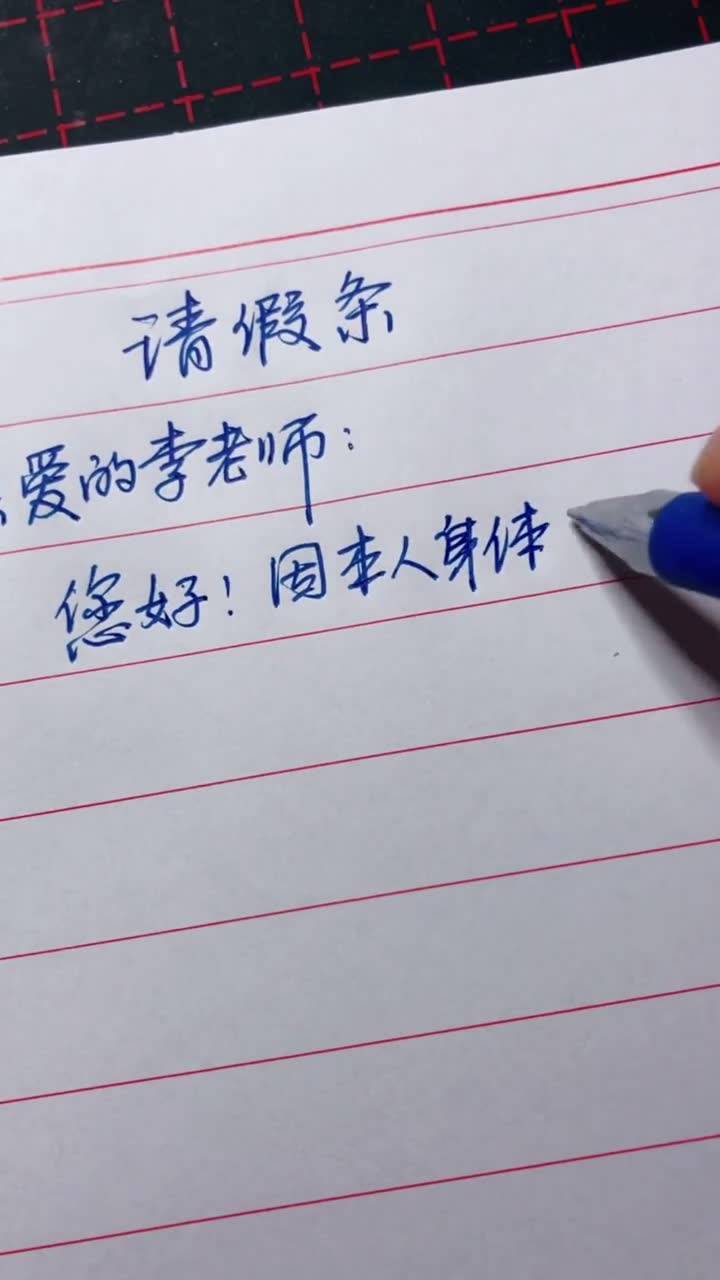 请假条
爱的李老师：
您好！因本人身体